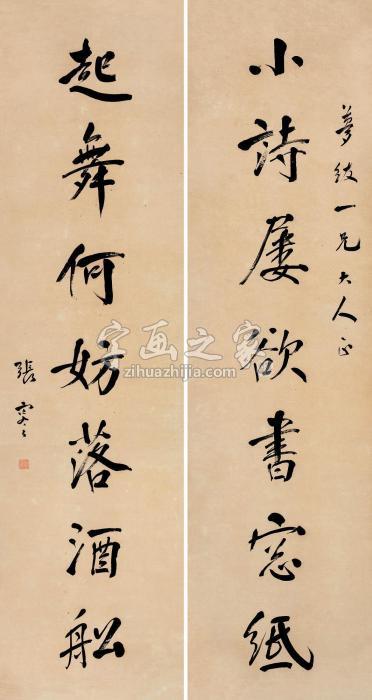 夢 一兄大人正
小詩屢欲書窓紙
起舞何妨落酒舩
張謇
字画之家
zihuazhijia.com